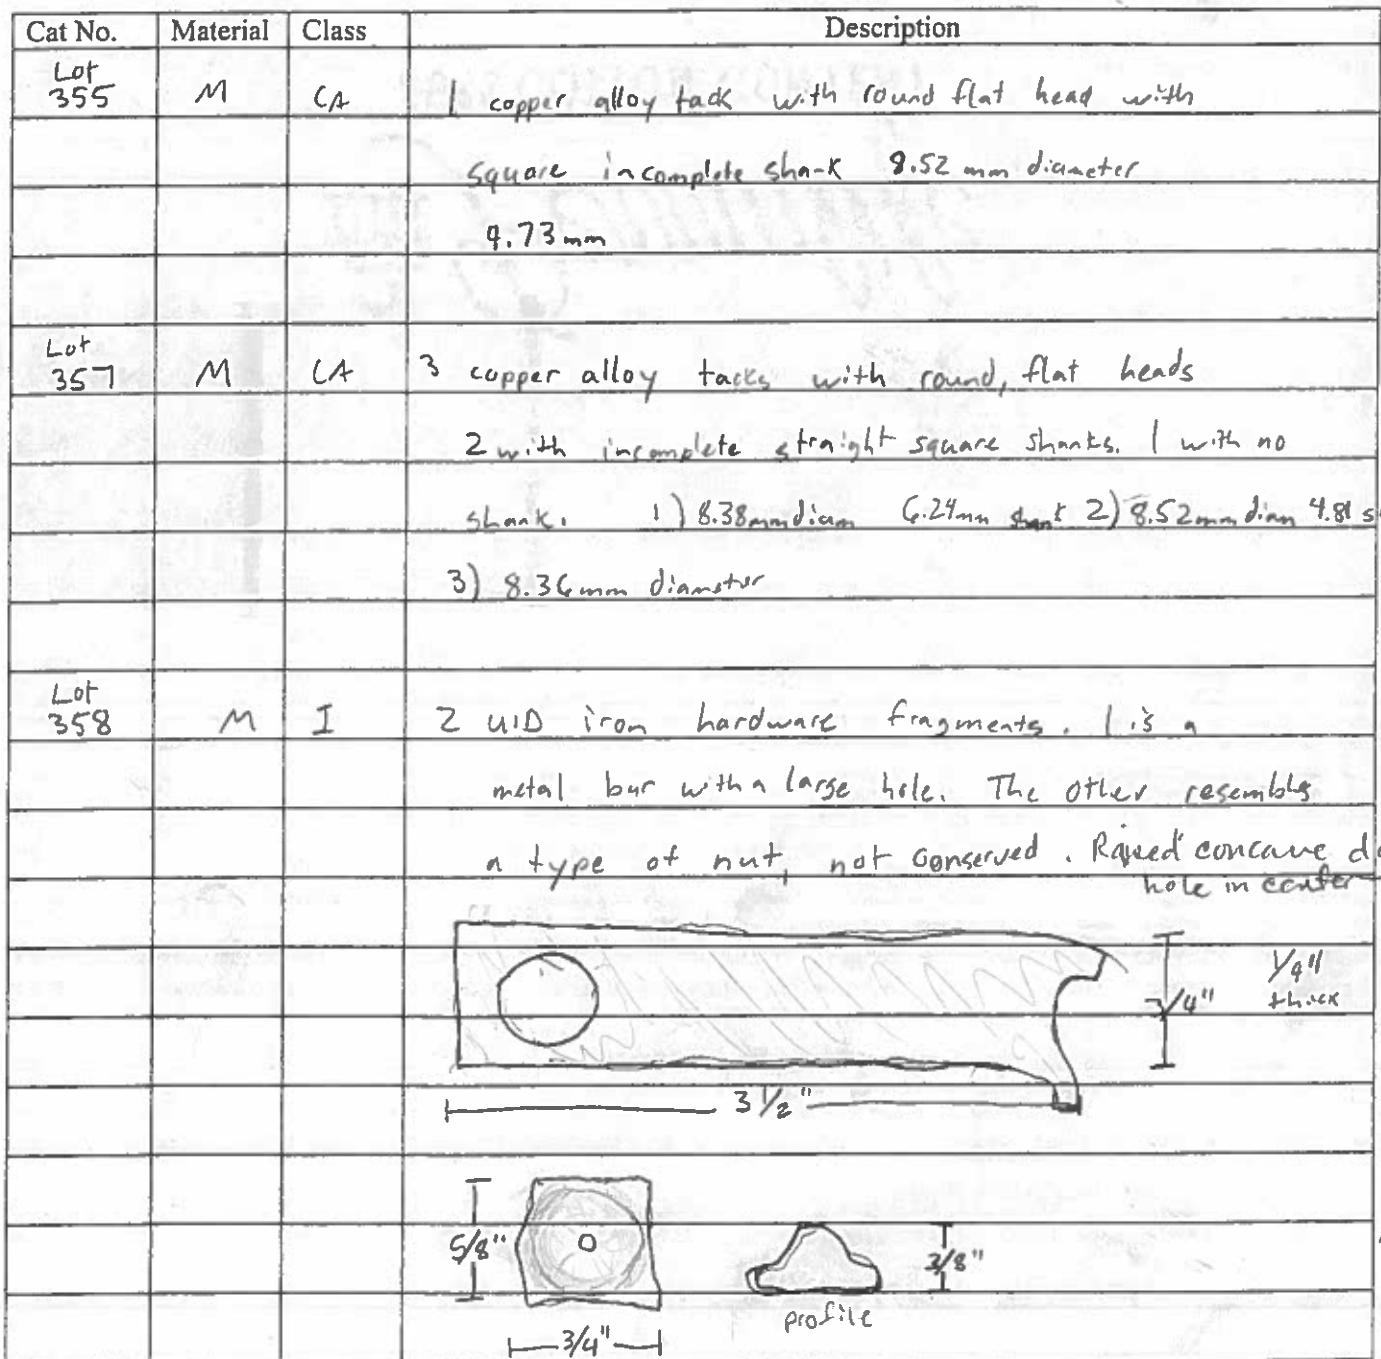 Cat No. Material Class Description
Lot
355 M CA 1 copper alloy tack with round flat head with
square incomplete shank 8.52 mm diameter
9.73 mm
Lot
357 M CA 3 copper alloy tacks with round, flat heads
2 with incomplete straight square shanks. 1 with no
shank. 1) 8.38mm diam 6.24mm shank 2) 8.52mm diam 4.81 s
3) 8.36mm diameter
Lot
358 M I 2 UID iron hardware fragments. 1 is a
metal bar with a large hole. The other resembles
a type of nut, not conserved. Raised concave
hole in center
1/4"
thick
3/4"
3 1/2"
5/8"
3/8"
profile
3/4"